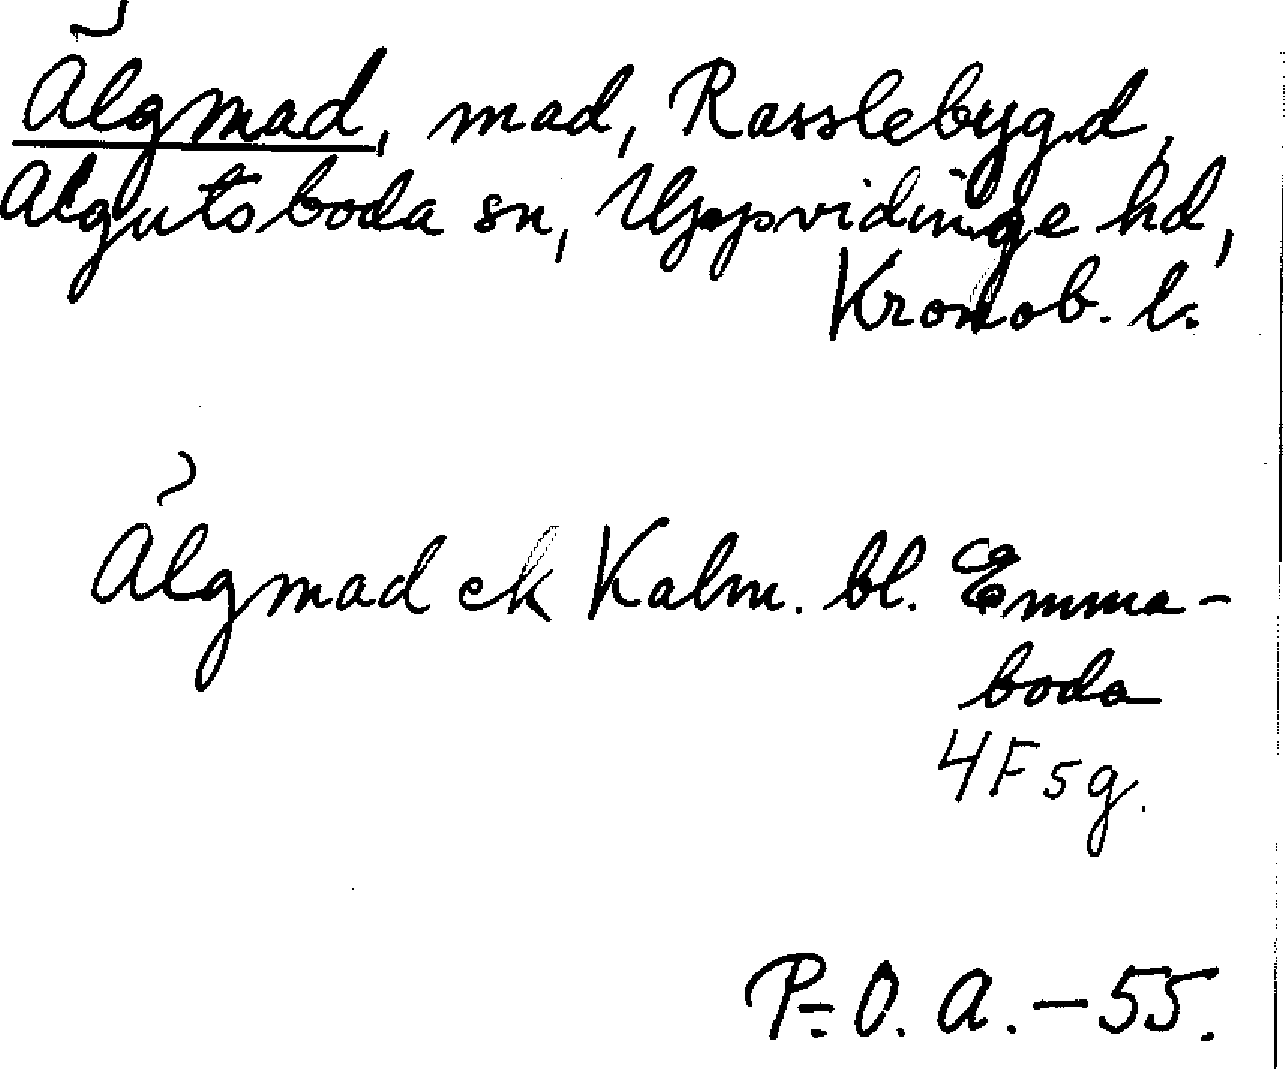 Älgmad, mad, Rasslebygd,
Algutsboda sn, Uppvidinge hd,
Kronob. l.
Älgmad ek Kalm. bl. Emma-
boda
4F5g.
P-O. A. - 55.